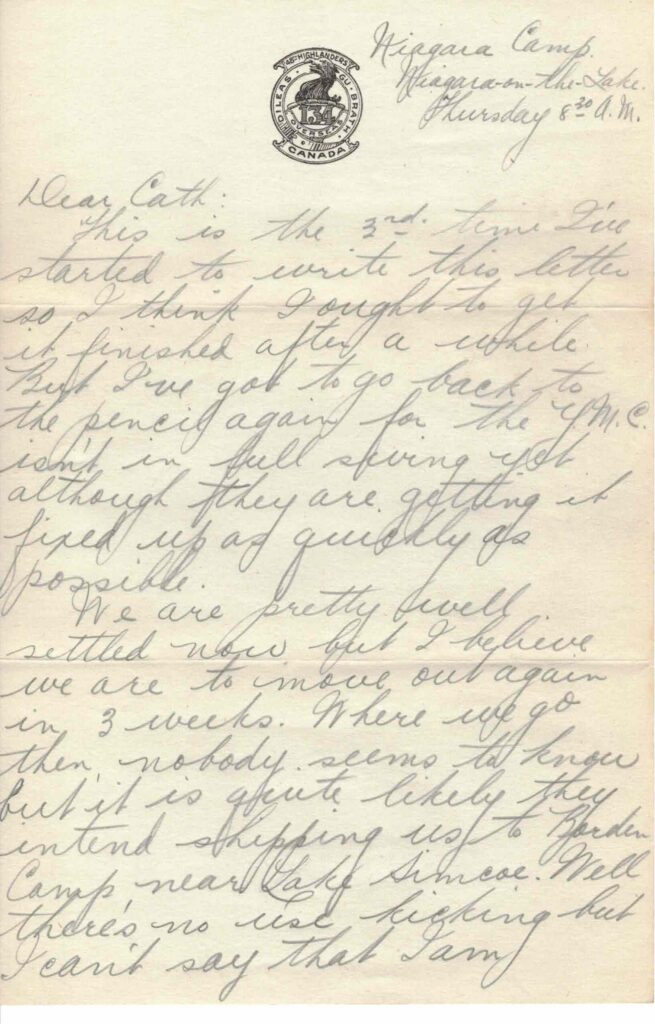 48TH HIGHLANDERS
DILEAS GU BRATH
134
OVERSEAS
CANADA
Niagara Camp.
Niagara-on-the-Lake.
Thursday 8 30 A.M.
Dear Cath:
This is the 3rd. time I've
started to write this letter
so I think I ought to get
it finished after a while.
But I've got to go back to
the pencil again for the Y.M.C.
isn't in full swing yet
although they are getting it
fixed up as quickly as
possible.
We are pretty well
settled now but I believe
we are to move out again
in 3 weeks. Where we go
then, nobody seems to know
but it is quite likely they
intend shipping us to Borden
Camp near Lake Simcoe. Well
there's no use kicking but
I can't say that I am